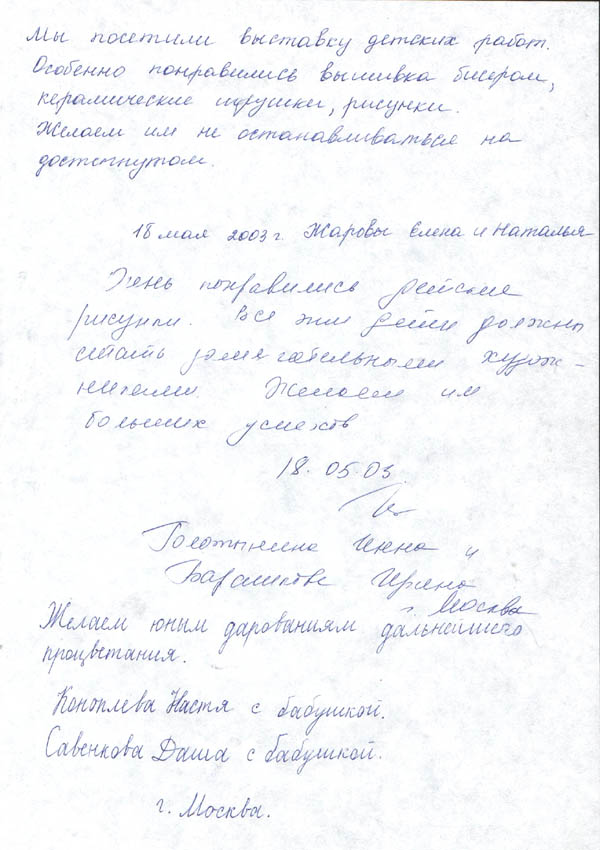 Мы посетили выставку детских работ.
Особенно понравились вышивка бисером,
керамические игрушки, рисунки.
Желаем им не останавливаться на
достигнутом.
18 мая 2003 г. Жаровы Елена и Наталья
Очень понравились детские
рисунки. Все эти дети должны
стать замечательными худож-
никами. Желаем им
больших успехов
18.05.03.
Инна и
Ирина
г. Москва
Желаем юным дарованиям дальнейшего
процветания.
Коноплева Настя с бабушкой.
Савенкова Даша с бабушкой.
г. Москва.